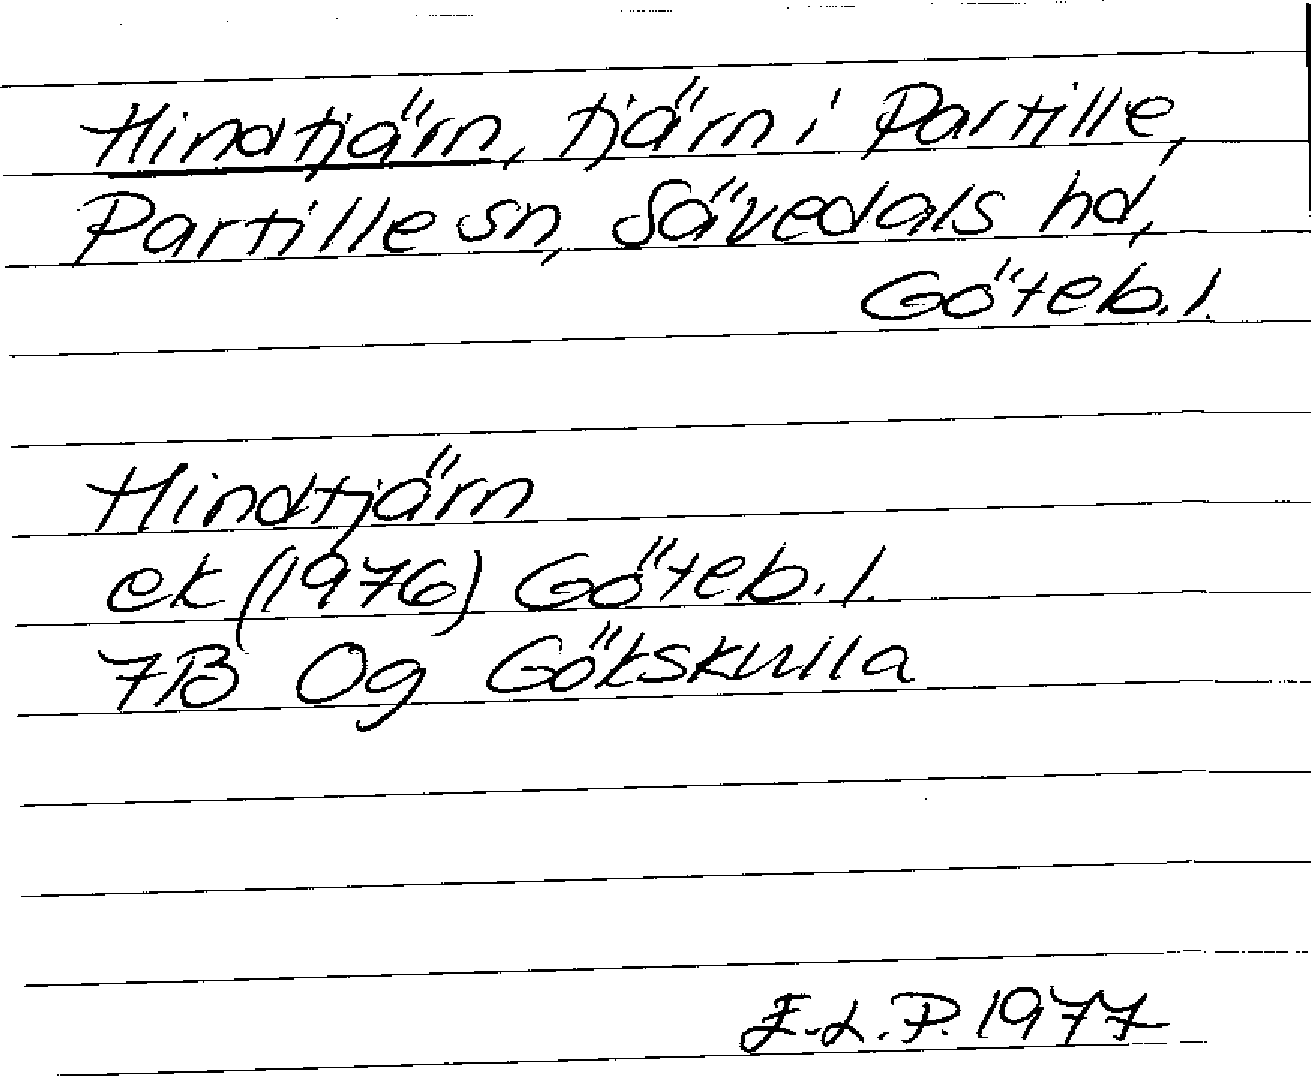 Hindtjärn, tjärn i Partille,
Partille sn, Sävedals hd,
Göteb. l.
Hindtjärn
ek (1976) Göteb. l.
7B 0g Gökskulla
E.L.P. 1977